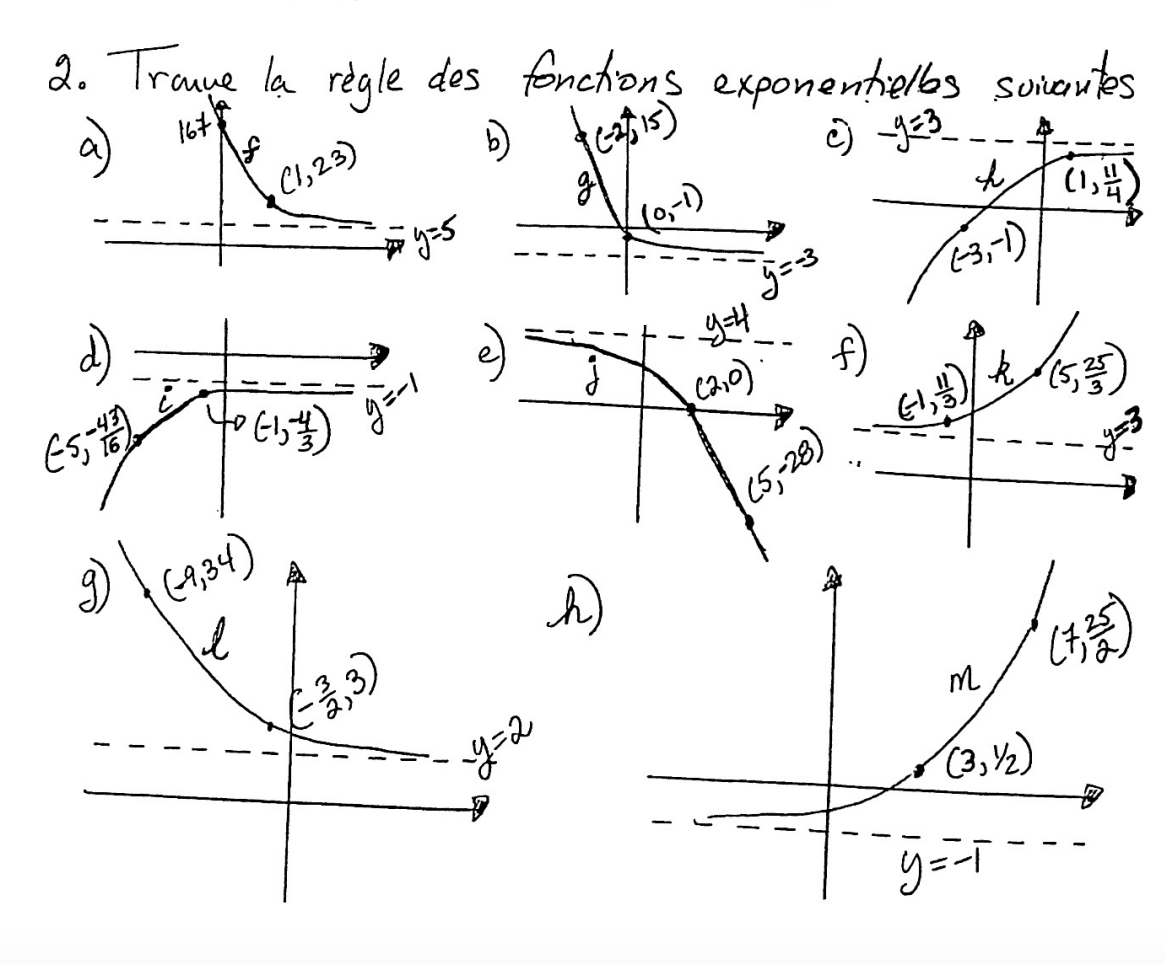 2. Trouve la règle des fonctions exponentielles suivantes
a) 167 f (1,23) y=5
b) (-2,15) g (0,-1) y=-3
c) y=3 h (1, 11/4) (-3,-1)
d) i (-5, -43/16) (-1, -4/3) y=-1
e) y=4 j (2,0) (5,-28)
f) (-1, 11/3) k (5, 25/3) y=3
g) (-9,34) l (-3/2, 3) y=2
h) m (7, 25/2) (3, 1/2) y=-1